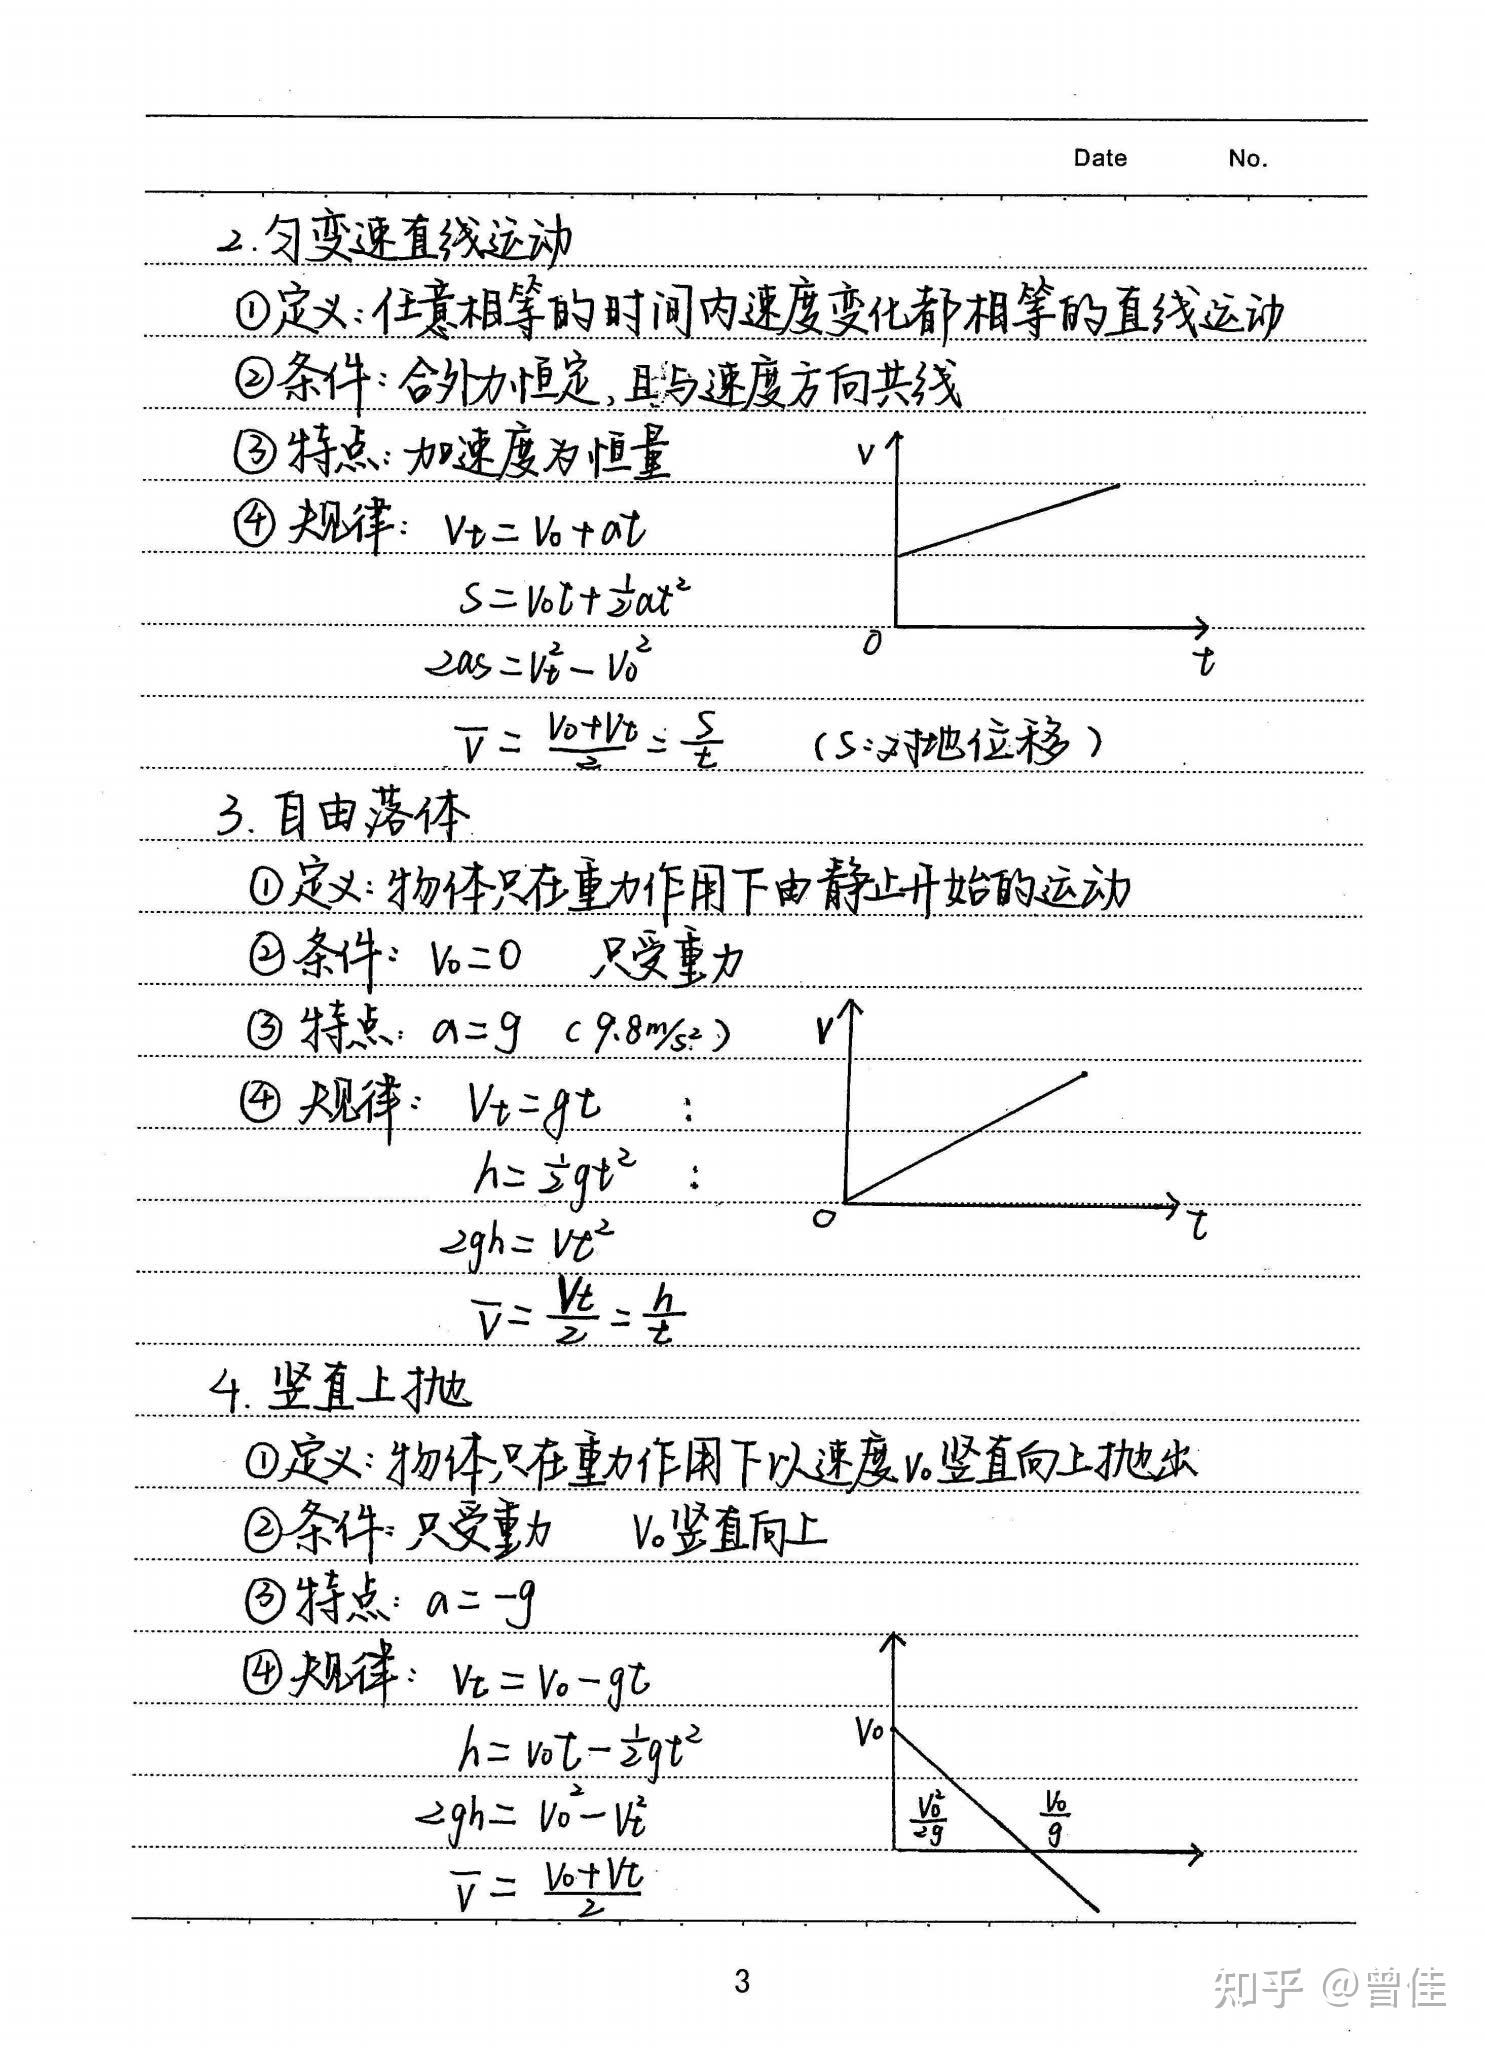 Date No.
2. 匀变速直线运动
①定义:任意相等的时间内速度变化都相等的直线运动
②条件:合外力恒定,且与速度方向共线
③特点:加速度为恒量
④规律: Vt=V₀+at
S=V₀t+½at²
2as=Vt²-V₀²
V̅=(V₀+Vt)/2=S/t (S:对地位移)
V
O
t
3. 自由落体
①定义:物体只在重力作用下由静止开始的运动
②条件: V₀=0 只受重力
③特点: a=g (9.8m/s²)
④规律: Vt=gt :
h=½gt² :
2gh=Vt²
V̅=Vt/2=h/t
V
O
t
4. 竖直上抛
①定义:物体只在重力作用下以速度V₀竖直向上抛出
②条件:只受重力 V₀竖直向上
③特点: a=-g
④规律: Vt=V₀-gt
h=V₀t-½gt²
2gh=V₀²-Vt²
V̅=(V₀+Vt)/2
V₀
V₀²/2g
V₀/g
3
知乎 @曾佳